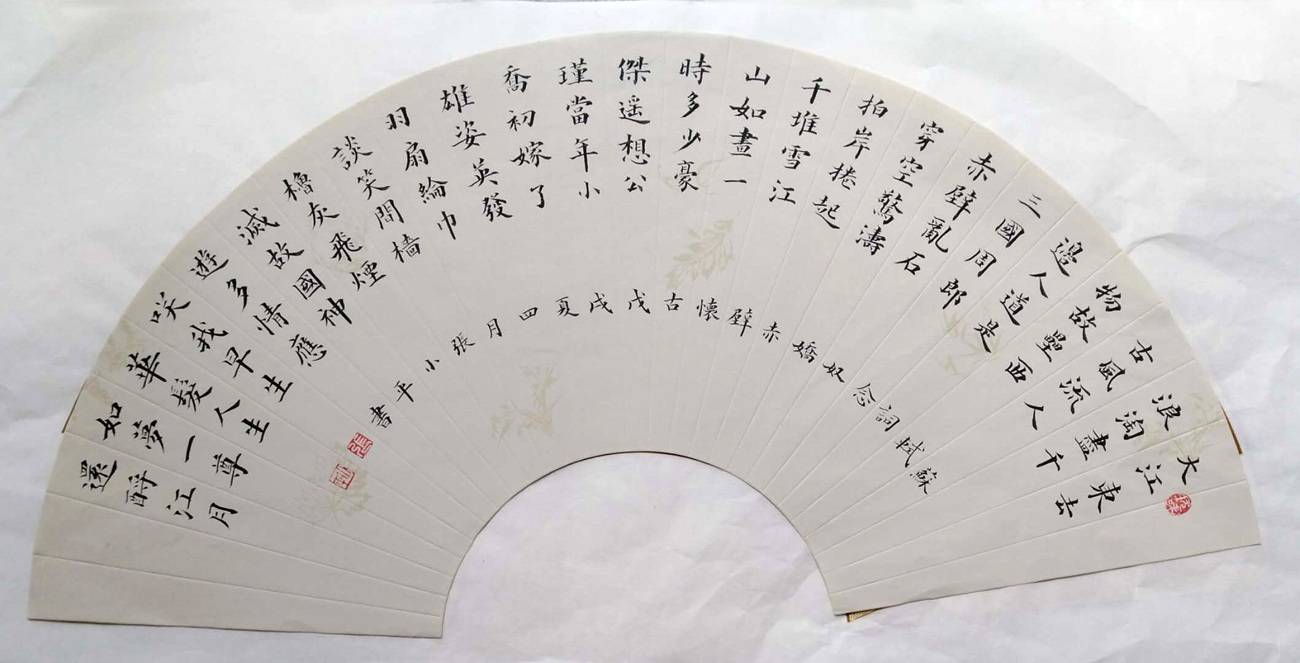 大江東去
浪淘盡千
古風流人
物故壘西
邊人道是
三國周郎
赤壁亂石
穿空驚濤
拍岸捲起
千堆雪江
山如畫一
時多少豪
傑遥想公
瑾當年小
喬初嫁了
雄姿英發
羽扇綸巾
談笑間檣
櫓灰飛煙
滅故國神
遊多情應
咲我早生
華髮人生
如夢一尊
還酹江月
蘇軾詞念奴嬌赤壁懷古戊戌夏四月張小平書